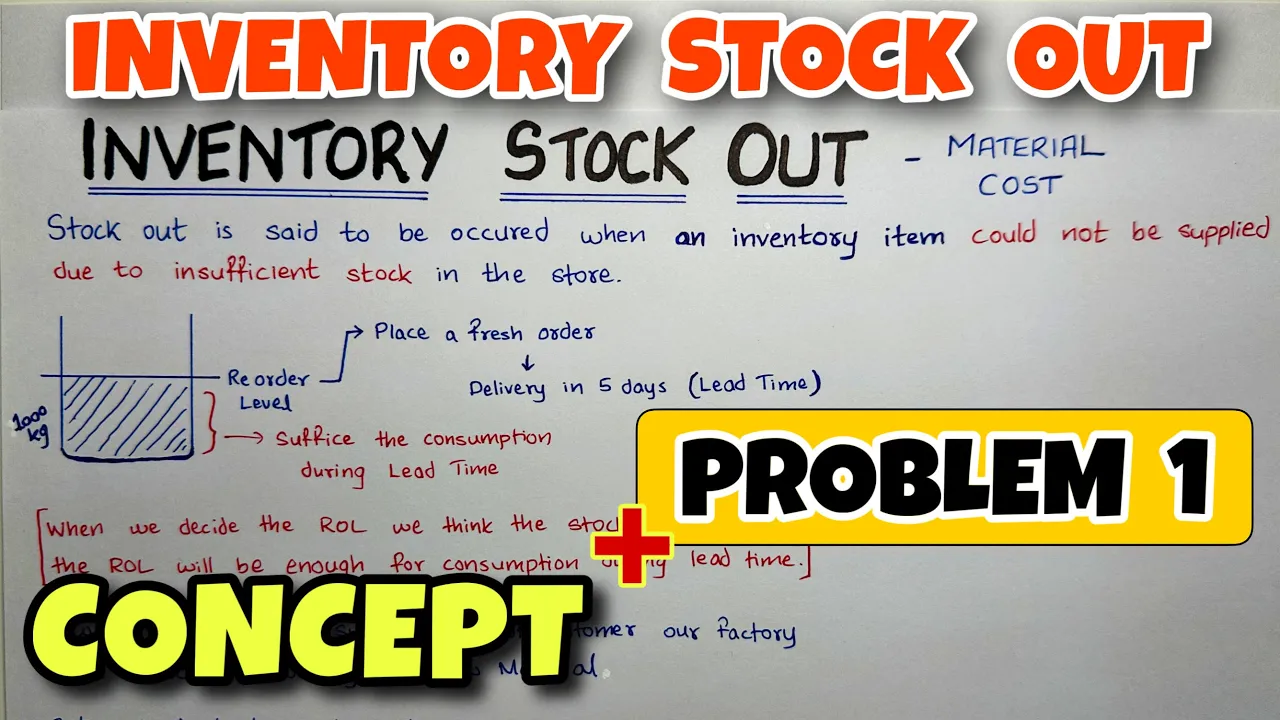 INVENTORY STOCK OUT
INVENTORY STOCK OUT - MATERIAL
COST
Stock out is said to be occured when an inventory item could not be supplied
due to insufficient stock in the store.
Place a fresh order
Reorder
Level
Delivery in 5 days (Lead Time)
1000
kg
Suffice the consumption
during Lead Time
PROBLEM 1
[When we decide the ROL we think the
the ROL will be enough for consumption lead time.]
+
CONCEPT
our factory